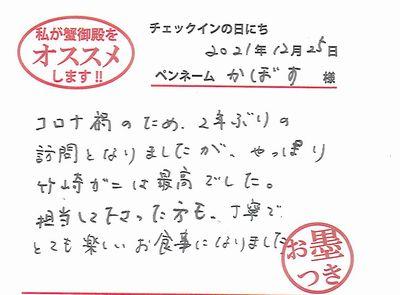 私が蟹御殿を
オススメ
します!!
チェックインの日にち
2021年12月25日
ペンネーム かぼす 様
コロナ禍のため、2年ぶりの
訪問となりましたが、やっぱり
竹崎がには最高でした。
担当して下さった方も、丁寧で
とても楽しいお食事になりました
お墨
つき